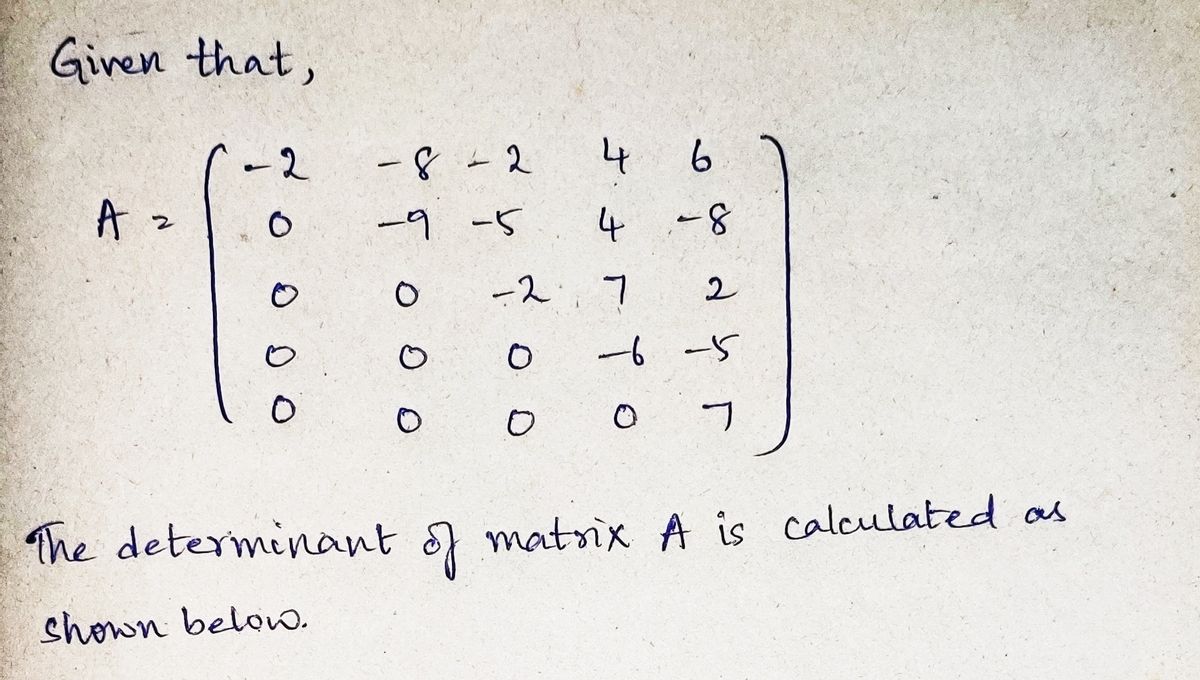 Given that,
-2 -8 -2 4 6
A = 0 -9 -5 4 -8
0 0 -2 7 2
0 0 0 -6 -5
0 0 0 0 7
The determinant of matrix A is calculated as
shown below.